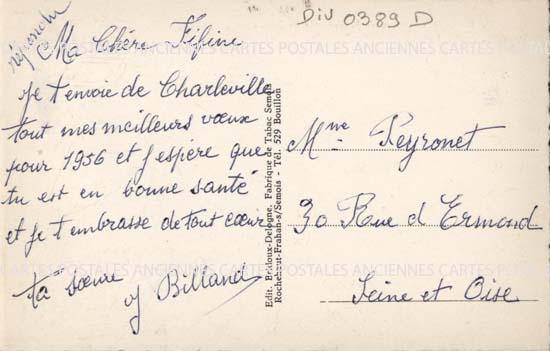 répondu
Div 0389 D
Ma Chère Fifine
je t envoie de Charleville
tout mes meilleurs vœux
pour 1956 et j espère que
tu est en bonne santé
et je t embrasse de tout cœur
ta sœure
y Billand
Edit. Bradoux-Delogne, Fabrique de Tabac Semois
Rochehaut-Frahan-s/Semois - Tél. 529 Bouillon
Mme Peyronet
30 Rue d Ermond
Seine et Oise
CARTES POSTALES ANCIENNES CARTES POSTALES ANCIENNES
CARTES POSTALES ANCIENNES CARTES POSTALES ANCIENNES